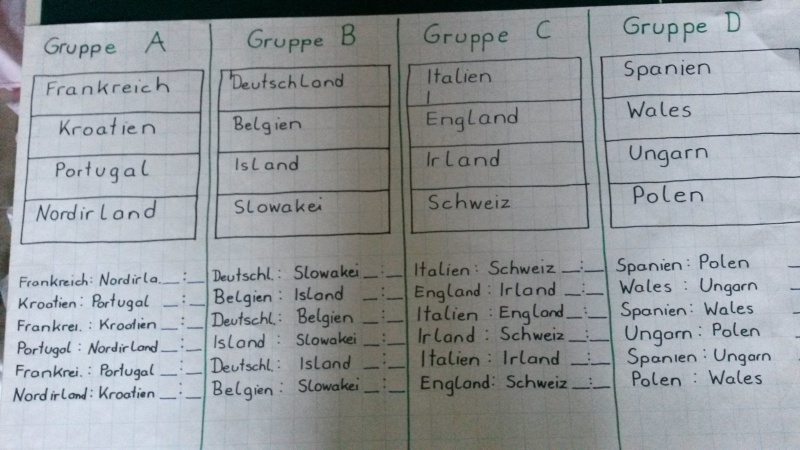 Gruppe A
Frankreich
Kroatien
Portugal
Nordirland
Frankreich: Nordirla. _:_
Kroatien: Portugal _:_
Frankrei. : Kroatien _:_
Portugal : Nordirland _:_
Frankrei. : Portugal _:_
Nordirland: Kroatien _:_
Gruppe B
Deutschland
Belgien
Island
Slowakei
Deutschl. : Slowakei _:_
Belgien : Island _:_
Deutschl. : Belgien _:_
Island : Slowakei _:_
Deutschl. : Island _:_
Belgien : Slowakei _:_
Gruppe C
Italien
England
Irland
Schweiz
Italien : Schweiz _:_
England : Irland _:_
Italien : England _:_
Irland : Schweiz _:_
Italien : Irland _:_
England: Schweiz _:_
Gruppe D
Spanien
Wales
Ungarn
Polen
Spanien : Polen _
Wales : Ungarn _
Spanien : Wales _
Ungarn : Polen _
Spanien : Ungarn _
Polen : Wales